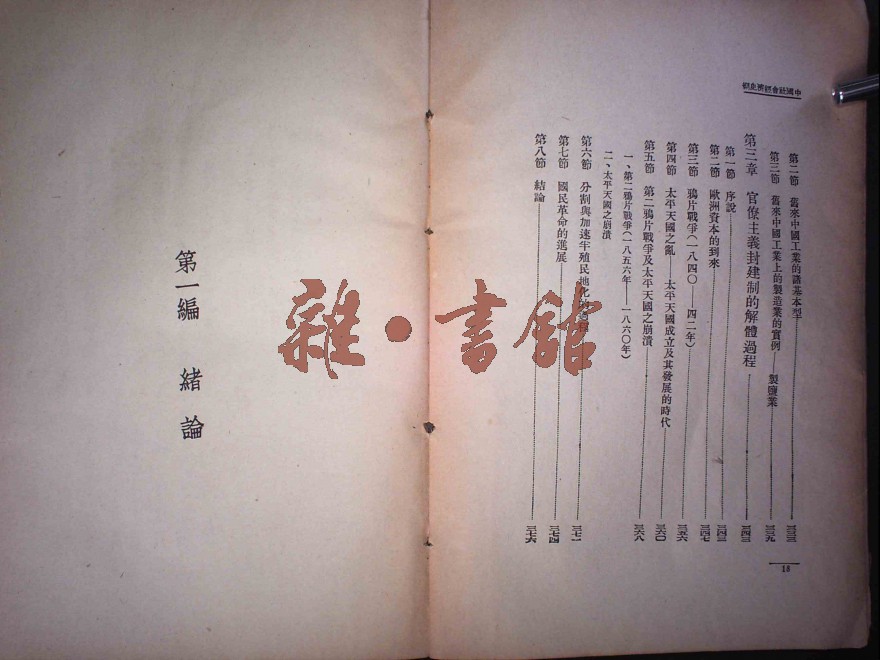 中國社會經濟史綱
第二節 舊來中國工業的諸基本型 三三三
第三節 舊來中國工業上的製造業的實例——製鹽業 三三九
第三章 官僚主義封建制的解體過程 三四三
第一節 序說 三四三
第二節 歐洲資本的到來 三四七
第三節 鴉片戰爭(一八四〇——四二年) 三五六
第四節 太平天國之亂——太平天國成立及其發展的時代 三六〇
第五節 第二鴉片戰爭及太平天國之崩潰 三六八
一、第二鴉片戰爭(一八五六年——一八六〇年)
二、太平天國之崩潰
第六節 分割與加速半殖民地化的過程 三七一
第七節 國民革命的進展 三七四
第八節 結論 三七六
18
第一編 緒論
雜·書館